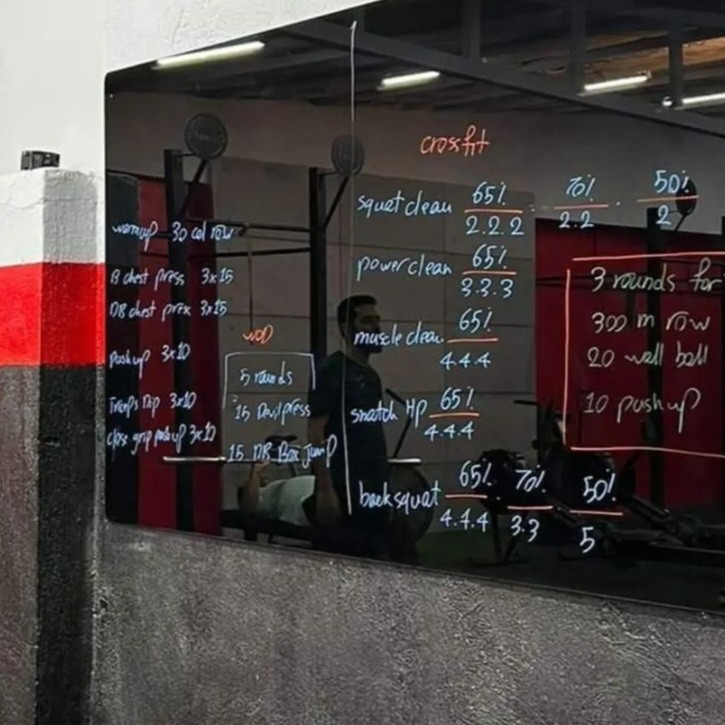 warmup 30 cal row
B chest press 3x15
DB chest press 3x15
push up 3x10
Triceps Dip 3x10
close grip push up 3x10
WOD
5 rounds
15 Devil press
15 DB Box Jump
crossfit
squat clean 65% 70% 50%
2.2.2 2.2 2
power clean 65%
3.3.3
muscle clean 65%
4.4.4
snatch HP 65%
4.4.4
back squat 65% 70% 50%
4.4.4 3.3 5
3 rounds for
300 m row
20 wall ball
10 push up